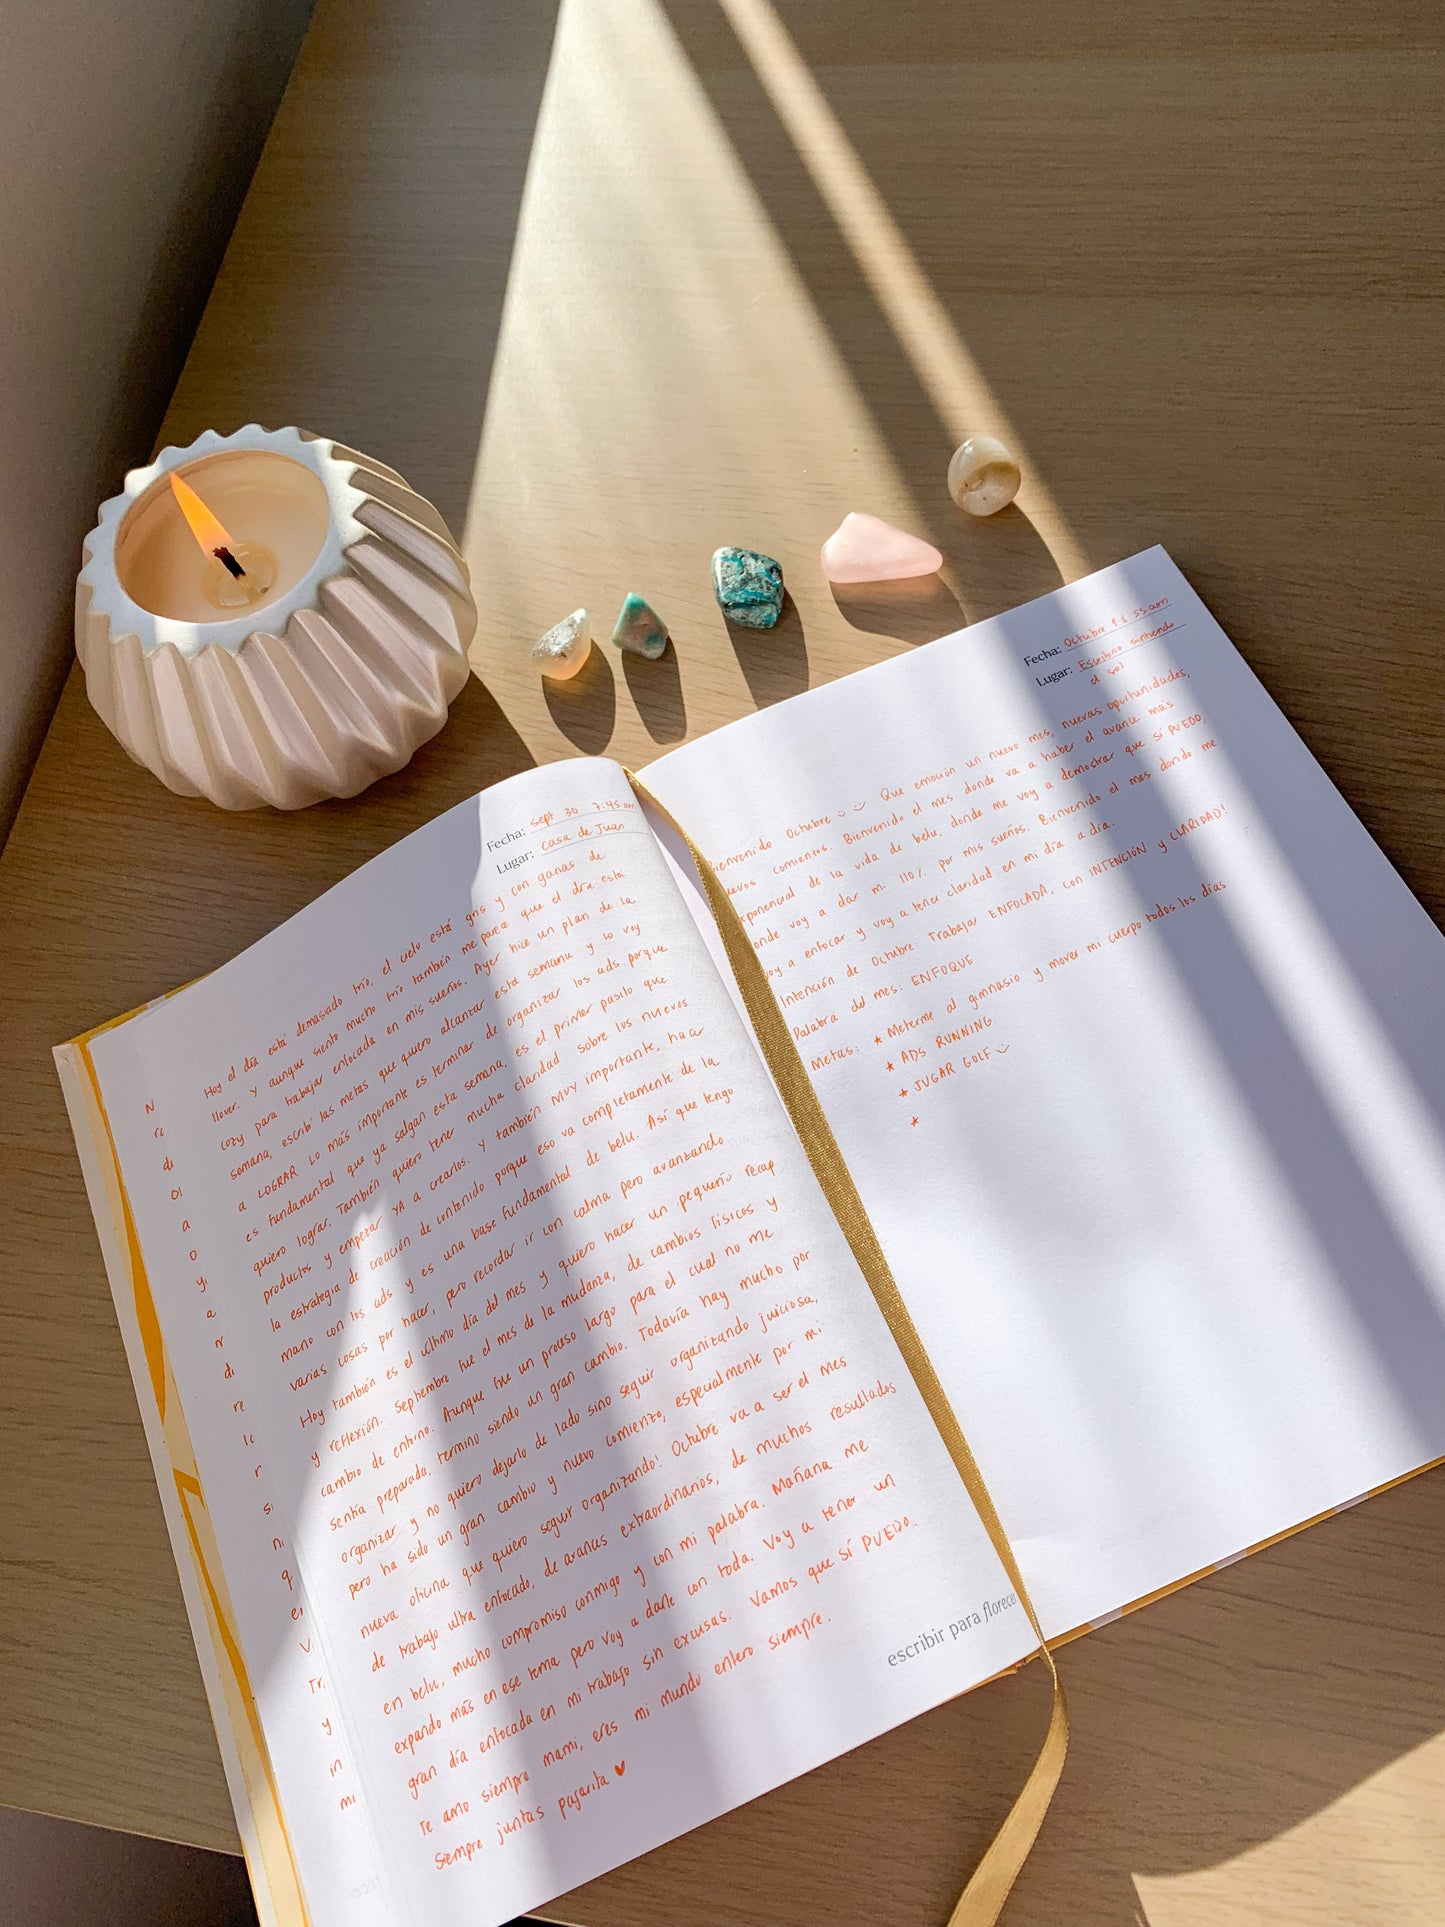 Fecha: Sept 30 7:45 am
Lugar: Casa de Juan
Hoy el día está demasiado frío, el cielo está gris y con ganas de
llover. Y aunque siento mucho frío también me parece que el día está
cozy para trabajar enfocada en mis sueños. Ayer hice un plan de la
semana, escribí las metas que quiero alcanzar esta semana y lo voy
a LOGRAR. Lo más importante es terminar de organizar los ads porque
es fundamental que ya salgan esta semana, es el primer pasito que
quiero lograr. También quiero tener mucha claridad sobre los nuevos
productos y empezar YA a crearlos. Y también MUY importante, hacer
la estrategia de creación de contenido porque eso va completamente de la
mano con los ads y es una base fundamental de belu. Así que tengo
varias cosas por hacer, pero recordar ir con calma pero avanzando.
Hoy también es el último día del mes y quiero hacer un pequeño recap
y reflexión. Septiembre fue el mes de la mudanza, de cambios físicos y
cambio de entorno. Aunque fue un proceso largo para el cual no me
sentía preparada, termino siendo un gran cambio. Todavía hay mucho por
organizar y no quiero dejarlo de lado sino seguir organizando juiciosa,
pero ha sido un gran cambio y nuevo comienzo, especialmente por mi
nueva oficina que quiero seguir organizando! Octubre va a ser el mes
de trabajo ultra enfocado, de avances extraordinarios, de muchos resultados
en belu, mucho compromiso conmigo y con mi palabra. Mañana me
expando más en ese tema pero voy a darle con toda. Voy a tener un
gran día enfocada en mi trabajo sin excusas. Vamos que SÍ PUEDO.
Te amo siempre mami, eres mi mundo entero siempre.
Siempre juntas pajarita ♥
escribir para florecer
Fecha: Octubre 1 6:55 am
Lugar: Escritorio sintiendo
el sol
Bienvenido Octubre Que emoción un nuevo mes, nuevas oportunidades,
nuevos comienzos. Bienvenido el mes donde va a haber el avance más
exponencial de la vida de belu, donde me voy a demostrar que SÍ PUEDO,
donde voy a dar mi 110% por mis sueños. Bienvenido el mes donde me
voy a enfocar y voy a tener claridad en mi día a día.
Intención de Octubre: Trabajar ENFOCADA, con INTENCIÓN y CLARIDAD!
Palabra del mes: ENFOQUE
Metas: * Meterme al gimnasio y mover mi cuerpo todos los días
* ADS RUNNING
* JUGAR GOLF
*